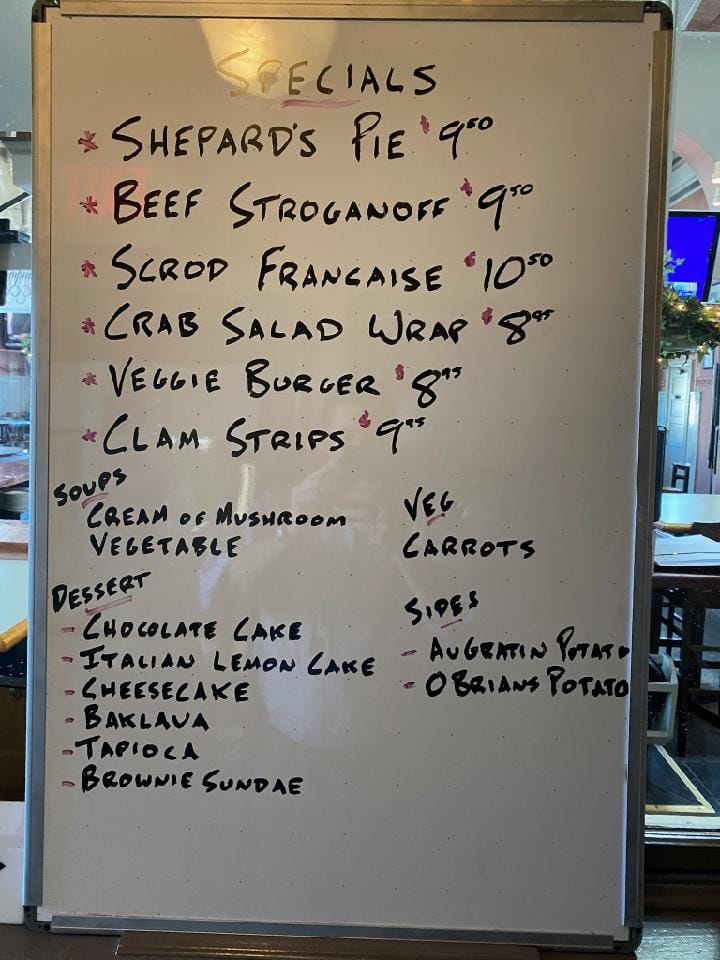 SPECIALS
* SHEPARD'S PIE $9⁵⁰
* BEEF STROGANOFF $9⁵⁰
* SCROD FRANCAISE $10⁵⁰
* CRAB SALAD WRAP $8⁹⁵
* VEGGIE BURGER $8⁹⁵
* CLAM STRIPS $9⁹⁵
SOUPS
CREAM OF MUSHROOM
VEGETABLE
DESSERT
- CHOCOLATE CAKE
- ITALIAN LEMON CAKE
- CHEESECAKE
- BAKLAVA
- TAPIOCA
- BROWNIE SUNDAE
VEG
CARROTS
SIDES
- AUGRATIN POTATO
- O'BRIANS POTATO